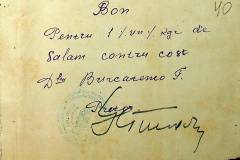 Bon 40
Pentru 1 /un/ kgr de
Salam contra cost
Dlui Burcarenco T.